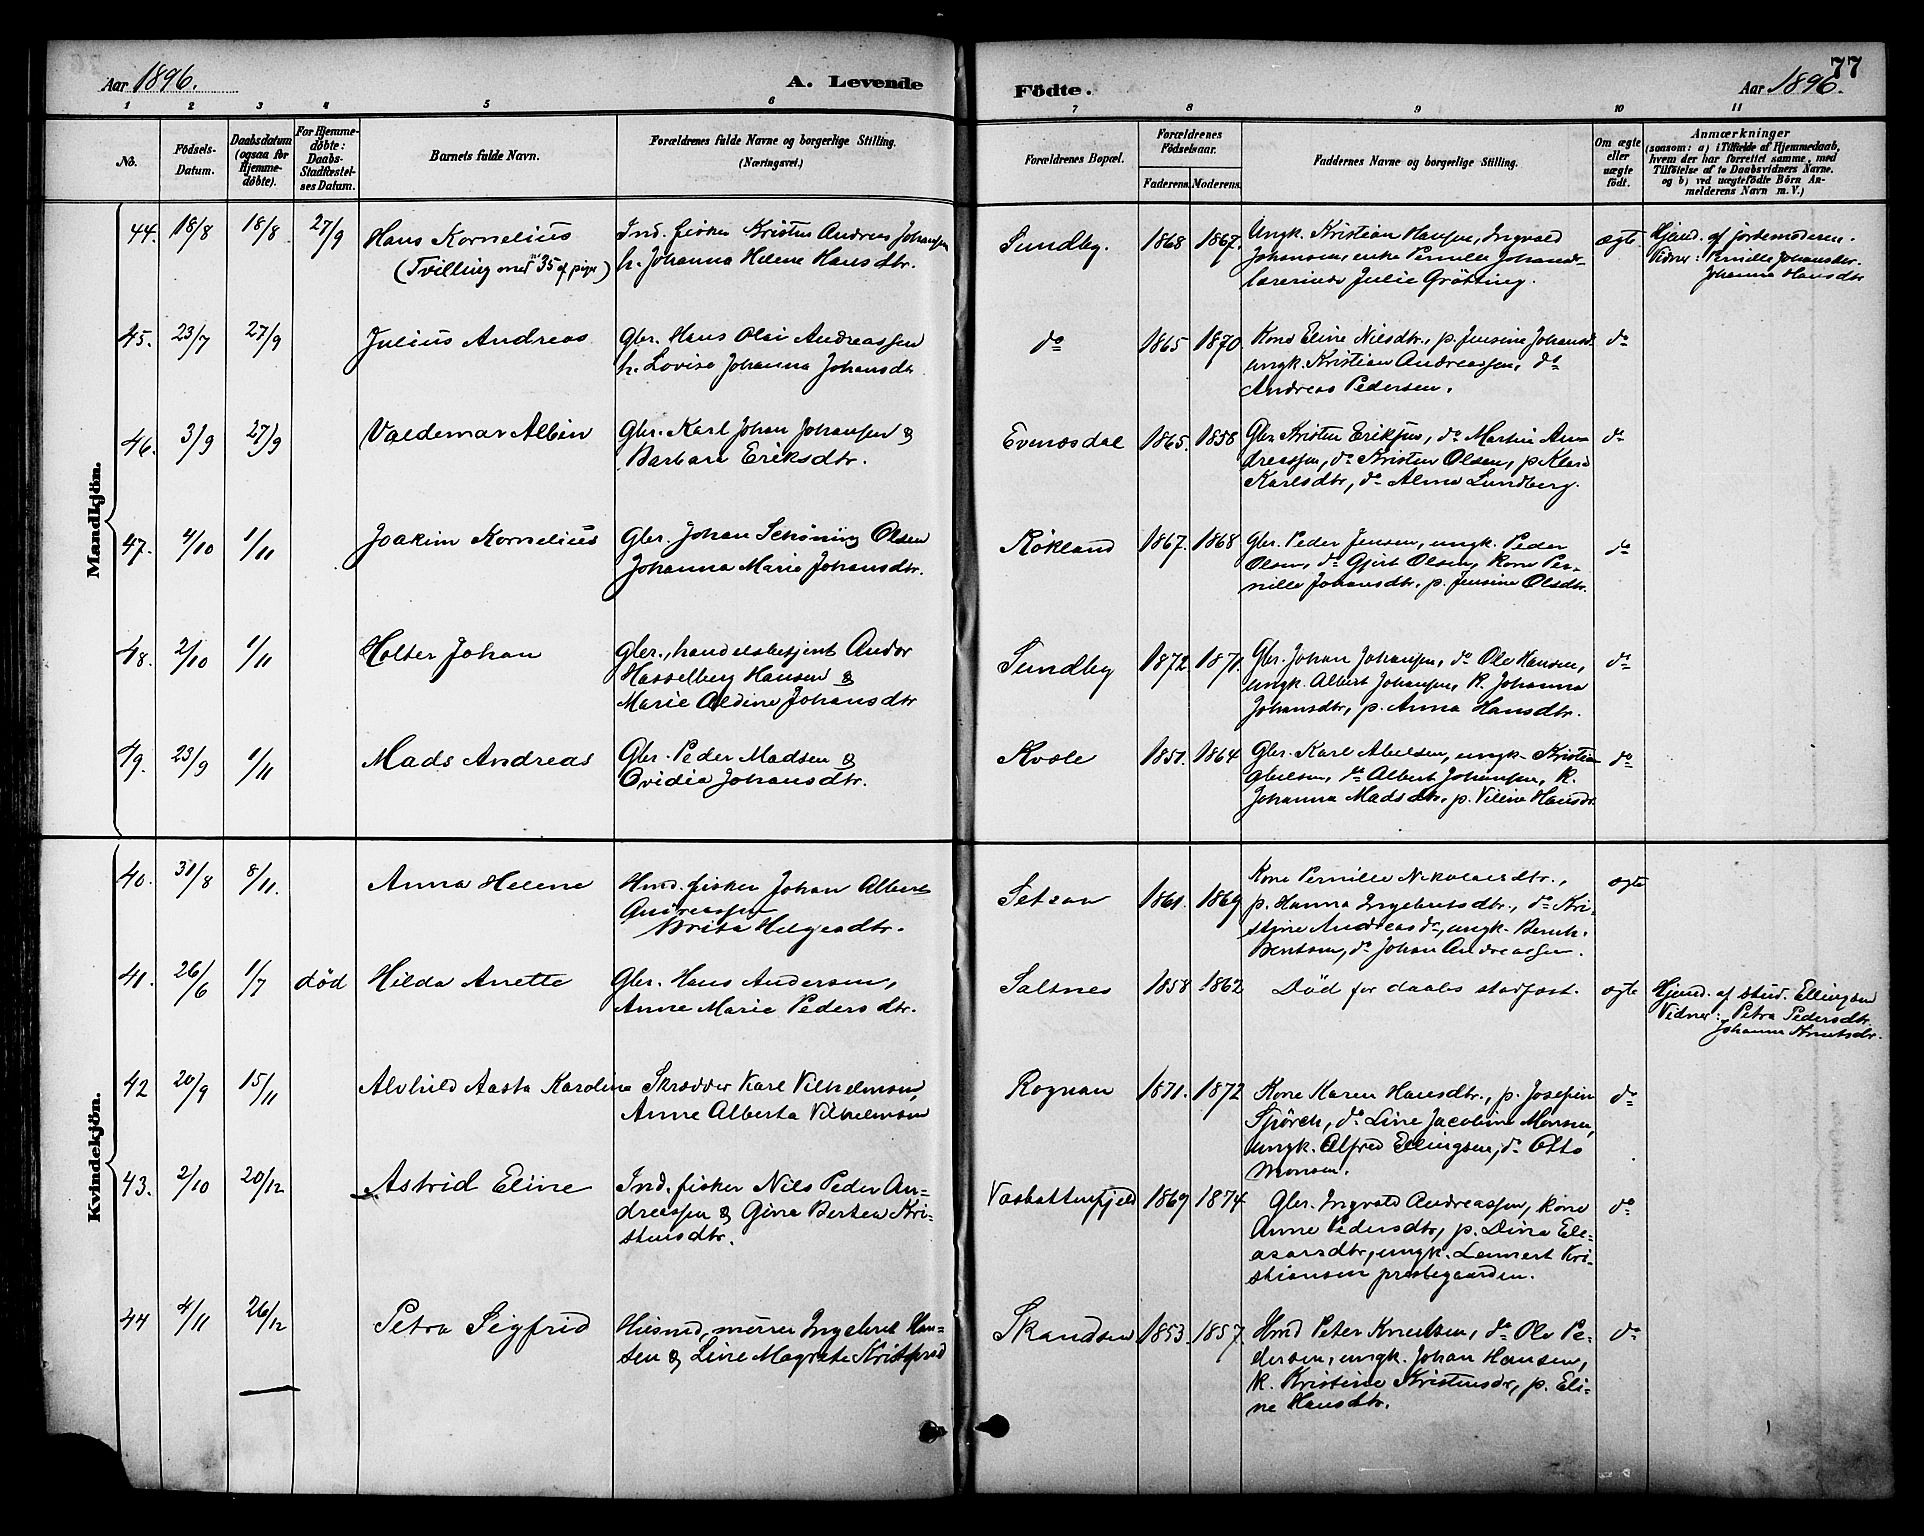 77
Aar 1896. A. Levende Födte. Aar 1896.
1 2 3 4 5 6 7 8 9 10 11
No.
Födsels-
Datum.
Daabsdatum
(ogsaa for
Hjemme-
döbte).
For Hjemme-
döbte:
Daabs-
Stadfæstel-
ses Datum.
Barnets fulde Navn.
Forældrenes fulde Navne og borgerlige Stilling.
(Næringsvei.)
Forældrenes Bopæl.
Forældrenes
Födselsaar.
Faderens. Moderens.
Faddernes Navne og borgerlige Stilling.
Om ægte
eller
uægte
født.
Anmærkninger
(saasom: a) i Tilfælde af Hjemmedaab,
hvem der har forrettet samme, med
Tilföielse af to Daabsvidners Navne.
og b) ved uægtefødte Börn An-
melderens Navn m. V.)
Mandkjön.
44. 18/8 18/8. 27/9 Hans Kornelius
(Tvilling med 35 af pige)
Ind. fisker Kristen Andreas Johansen
h. Johanna Helene Hansdtr.
Sundby. 1868 1867.
Ungk. Kristian Hansen, Ingvald
Johansen, enke Pernille Johansd.
lærerinde Julie Grötting.
ægte.
Hjemd. af jordemoderen.
Vidner: Pernille Johansdtr.
Johanna Hansdtr
45. 23/7 27/9 Julius Andreas
Gbr. Hans Olai Andreassen
h. Lovise Johanna Johansdtr
do 1865 1870.
Kone Eline Nilsdtr., p. Jensine Johansd.
ungk. Kristian Andreassen, do
Andreas Pedersen.
do
46. 3/9 27/9 Valdemar Albin
Gbr. Karl Johan Johansen &
Barbara Eriksdtr.
Evensdal 1865. 1858
Gbr Kristen Eriksen, do Martin An-
dreassen, do Kristen Olsen, p. Klara
Karlsdtr, do Alma Lundberg.
do
47. 4/10 1/11 Joakim Kornelius
Gbr. Johan Schöning Olsen
Johanna Marie Johansdtr.
Røkland 1867. 1868
Gbr. Peder Jensen, ungk. Peder
Olsen, do Gjert Olsen, Kone Per-
nille Johansdtr., p. Jensine Olsdtr.
do
48. 2/10 1/11 Holter Johan
Gbr., handelsbetjent Andor
Hasselberg Hansen &
Marie Aldine Johansdtr
Sundby 1872. 1871.
Gbr. Johan Johansen, do Ole Hansen,
ungk. Albert Johansen, K. Johanna
Johansdtr, p. Anna Hansdtr.
do
49. 23/9 1/11 Mads Andreas
Gbr. Peder Madsen &
Ovidia Johansdtr.
Kvæle 1851. 1864
Gbr. Karl Abelsen, ungk. Kristian
Abelsen, do Albert Johansen, K.
Johanna Madsdtr, p. Viline Hansdr
do
Kvindekjön.
40. 31/8 8/11. Anna Helene
Hmd. fisker Johan Albert
Andreassen
Brita Helgesdtr.
Setsaa 1861. 1869
Kone Pernille Nikolaisdtr.,
p. Hanna Ingebretsdtr., do Kri-
stine Andreasdr, ungk. Bernh.
Bentsen, do Johan Andreassen.
ægte
41. 26/6 1/7 død Hilda Anette
Gbr. Hans Andersen,
Anne Marie Pedersdtr.
Saltnes 1858 1862
Død før daabs stadfæst.
ægte
Hjemd. af stud. Ellingsen
Vidner: Petra Pedersdtr.
Johanna Knutsdr.
42 20/9 15/11 Alvhild Aasta Karoline
Skrædder Karl Vilhelmsen,
Anne Alberta Vilhelmsen
Rognan 1871. 1872
Kone Karen Hansdtr., p. Josefin
Störch, do Line Jacobine Monsen,
ungk. Alfred Ellingsen, do Otto
Monsen.
do
43. 2/10 20/12 Astrid Eline
Ind. fisker Nils Peder An-
dreassen & Gina Bertea Kri-
stensdtr.
Vasbottenfjeld 1869 1874
Gbr. Ingvald Andreassen, kone
Anne Pedersdtr, p. Dina Ele-
asarsdtr, ungk. Lennert Kri-
stiansen prestegaarden.
do
44 4/11 26/12 Petra Sigfrid
Husmd, murer Ingebret Han-
sen & Line Magrete Kristofersd
Skandsen 1853. 1857.
Hmd Peter Knutsen, do Ole Pe-
dersen, ungk. Johan Hansen,
K. Kristine Kristensdr, p. Eli-
ne Hansdtr.
do